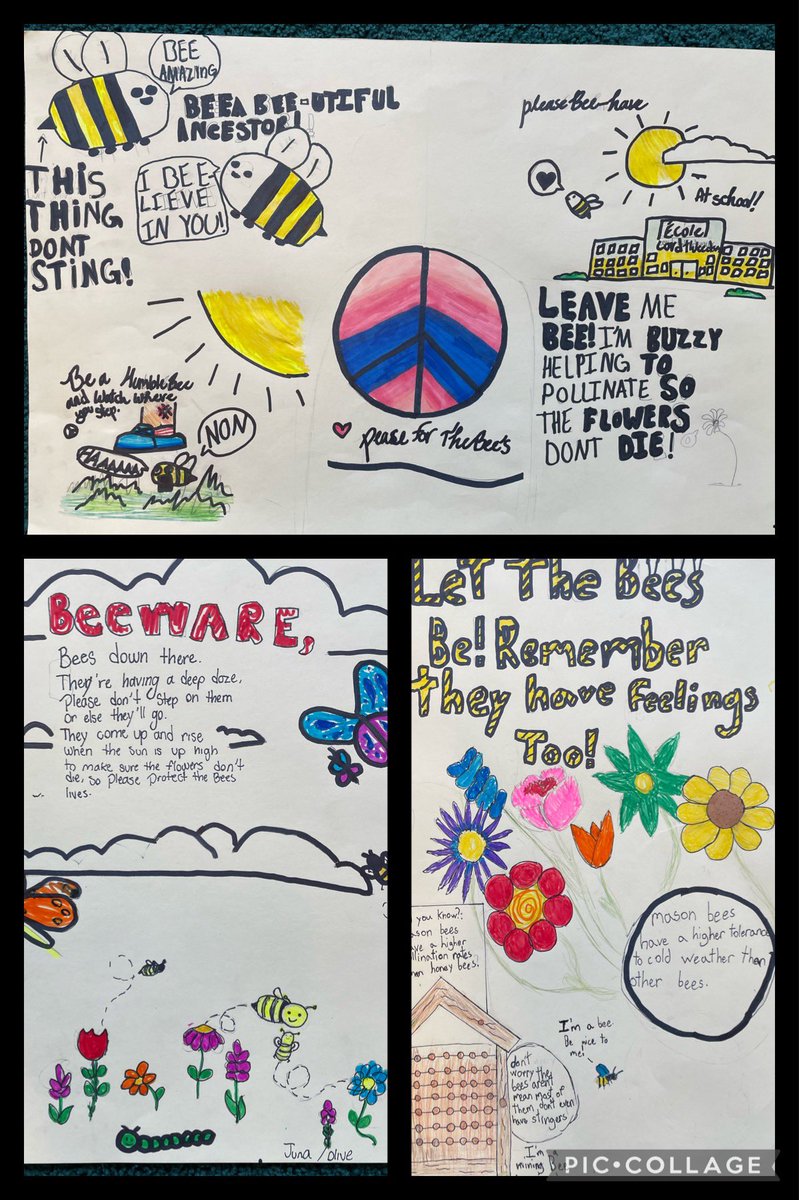 BEE
AMAZING
BEE A BEE-UTIFUL
ANCESTOR!
THIS
THING
DONT
STING!
I BEE
LIEVE
IN YOU!
please Bee-have
At school!!
École
Lord Tweedsmuir
LEAVE ME
BEE! I'M BUZZY
HELPING TO
POLLINATE SO
THE FLOWERS
DONT DIE!
Be a HumbleBee
and Watch Where
you step.
NON
HAAAAAA
Pease for The Bee's
BEEWARE,
Bees down there.
They're having a deep daze,
Please don't step on them
or else they'll go.
They come up and rise
when the sun is up high
to make sure the flowers don't
die, so please protect the Bees
lives.
Juna / olive
Let The Bees
Be! Remember
they have Feelings
Too!
you know?:
ason bees
ve a higher
llination rates
en honey bees?
mason bees
have a higher tolerance
to cold weather then
other bees.
I'm a bee.
Be nice to
me!
dont
worry the
bees arent
mean most of
them, dont even
have stingers
I'm
mining Bee
PIC•COLLAGE